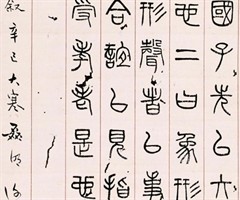 國子先以六
也二曰象形
形聲者以事
合誼以見指
受考老是也
敘辛巳大寒